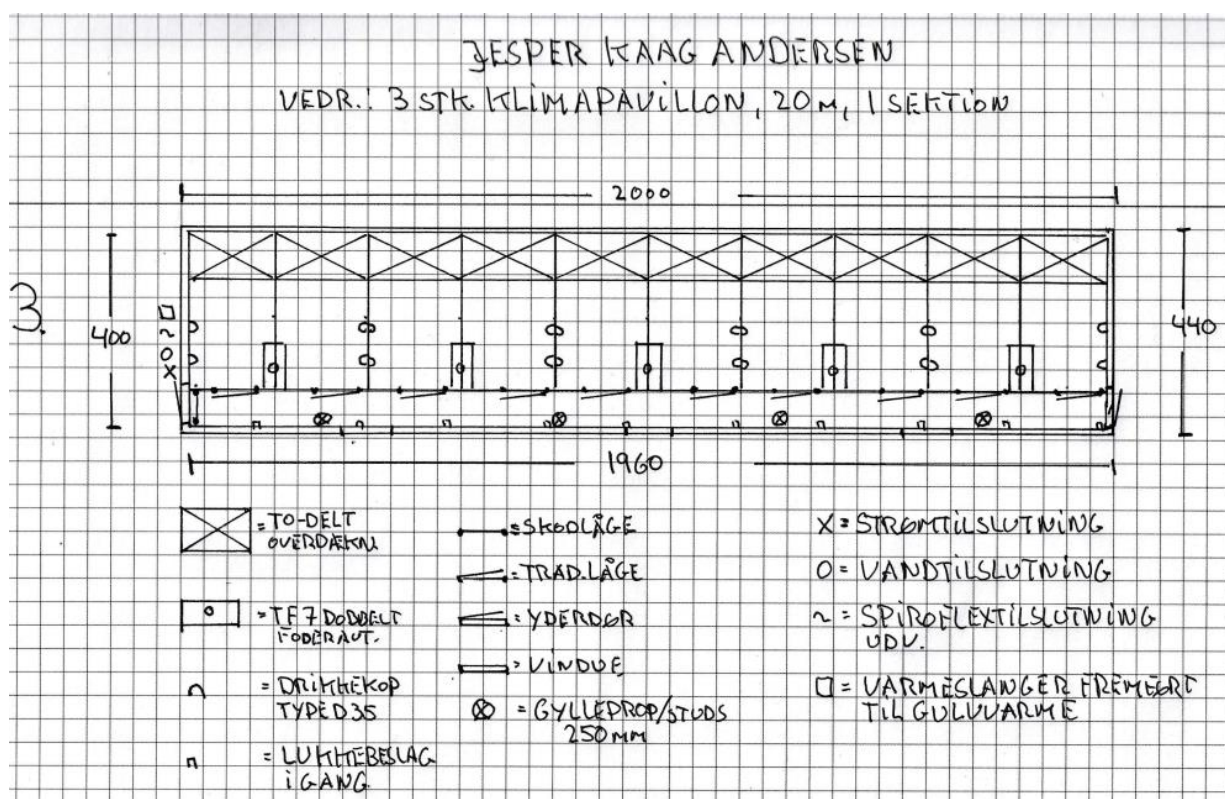 JESPER KAAG ANDERSEN
VEDR.: 3 STK. KLIMAPAVILLON, 20 M, 1 SEKTION
2000
3.
400
440
X O ~ □
1960
= TO-DELT
OVERDÆKN.
= TF7 DOBBELT
FODERAUT.
∩ = DRIKKEKOP
TYPE D35
⊓ = LUKKEBESLAG
I GANG
= SKODLÅGE
= TRAD. LÅGE
= YDERDØR
= VINDUE
⊗ = GYLLEPROP/STUDS
250 MM
X = STRØMTILSLUTNING
O = VANDTILSLUTNING
~ = SPIROFLEXTILSLUTNING
UDV.
□ = VARMESLANGER FREMFØRT
TIL GULVVARME